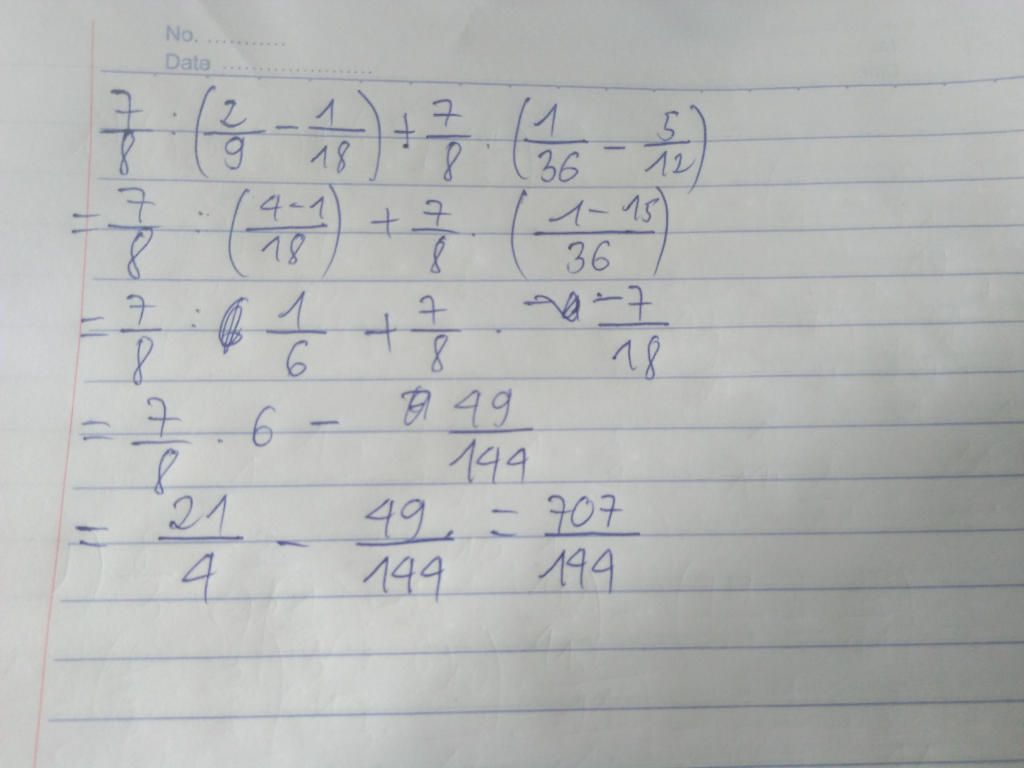 No. ...........
Date .....................
7/8 : (2/9 - 1/18) + 7/8 . (1/36 - 5/12)
= 7/8 : (4-1/18) + 7/8 . (1-15/36)
= 7/8 : 1/6 + 7/8 . -7/18
= 7/8 . 6 - 49/144
= 21/4 - 49/144 = 707/144